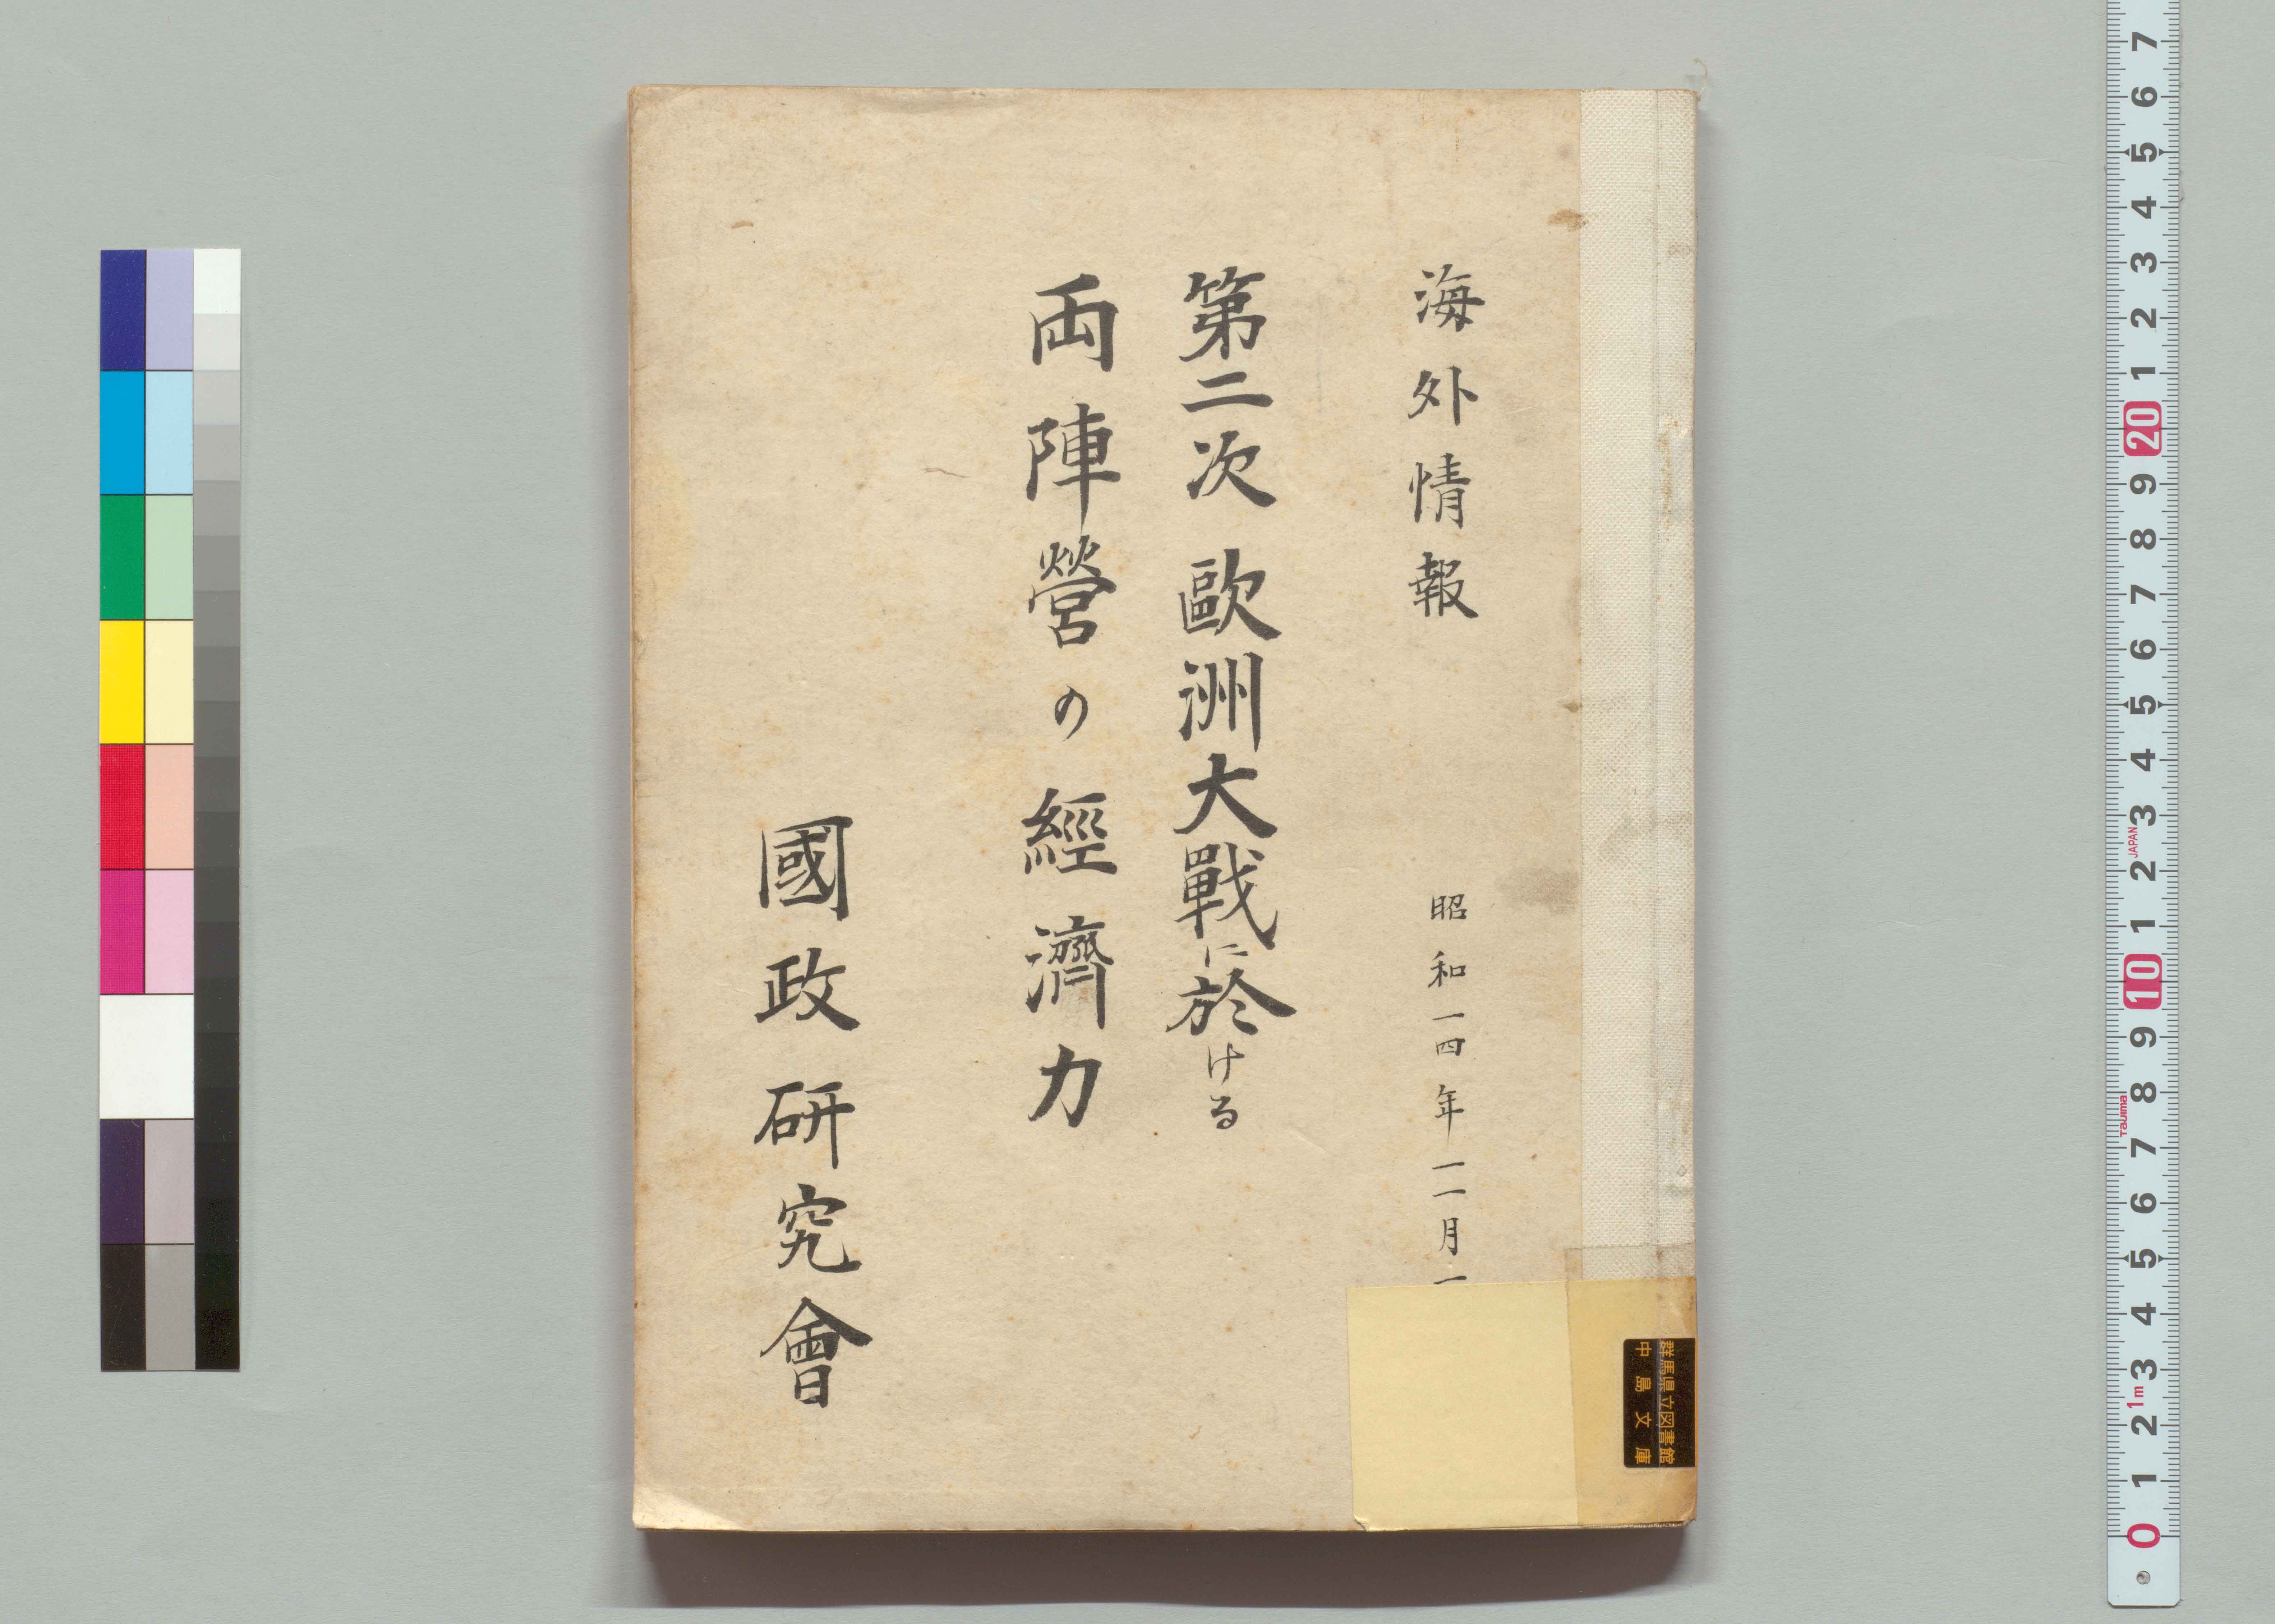 海外情報　昭和一四年一一月一
第二次歐洲大戰に於ける
両陣營の經濟力
國政研究會
群馬県立図書館
中島文庫
7 6 5 4 3 2 1 20 9 8 7 6 5 4 3 2 1 10 9 8 7 6 5 4 3 2 1 0
JAPAN
Tajima
1m